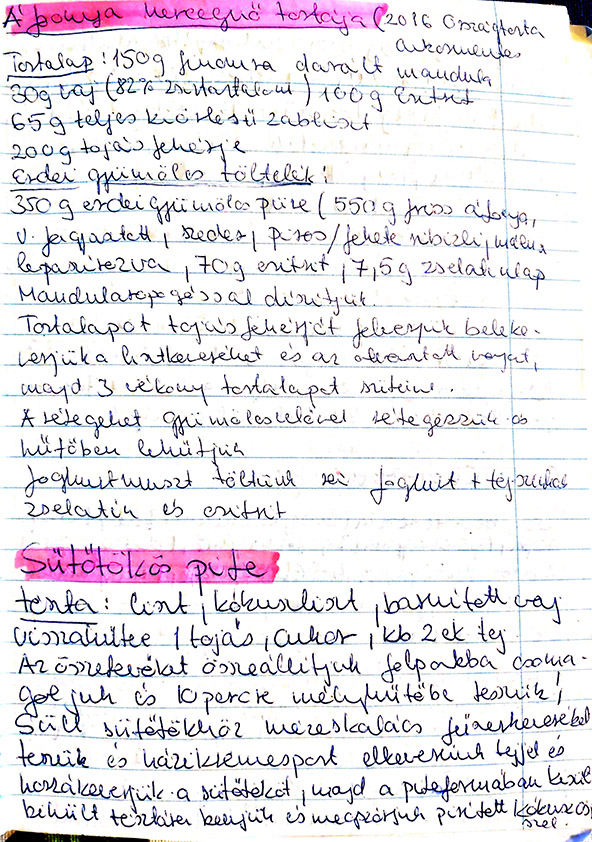 Áfonya hercegnő tortája (2016 Országtorta
cukormentes
Tortalap: 150g finomra darált mandula
30g vaj (82% zsírtartalom) 100g Eritrit
65g teljes kiőrlésű zabliszt
200g tojásfehérje
Erdei gyümölcs töltelék:
350 g erdeigyümölcs püré (550g friss áfonya,
v. fagyasztott, szeder, piros/fekete ribizli, málna
lepasírozva, 70g eritrit, 7,5g zselatinlap
Mandularopogóssal díszítjük
Tortalapot tojásfehérjét felverjük beleke-
verjük a lisztkeveréket és az olvasztott vajat,
majd 3 vékony tortalapot sütünk.
A rétegeket gyümölcszselével rétegezzük és
hűtőben lehűtjük
Joghurtmuszt töltünk rá joghurt + tejszínhab
zselatin és eritrit
Sütőtökös pite
tészta: liszt, kókuszliszt, barnított vaj
visszahűtve 1 tojás, cukor, kb 2 ek tej.
Az összetevőket összeállítjuk folpakba csoma-
goljuk és 10 percre mélyhűtőbe tesszük!
Sült sütőtökhöz mézeskalács fűszerkeveréket
teszük és házikrémesport elkeverünk tejjel és
hozzákeverjük a sütőtököt, majd a piteformában kisült
kihűlt tésztára kenjük és megszórjuk pirított kókuszos